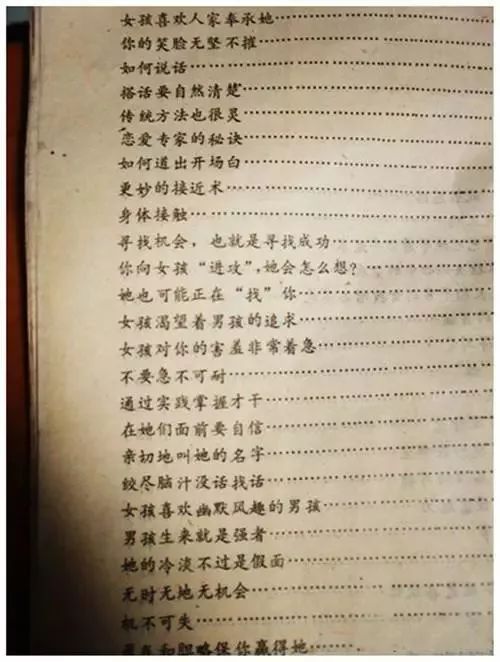 女孩喜欢人家奉承她……………………
你的笑脸无坚不摧……………………
如何说话……………………
搭话要自然清楚……………………
传统方法也很灵……………………
恋爱专家的秘诀……………………
如何道出开场白……………………
更妙的接近术……………………
身体接触……………………
寻找机会，也就是寻找成功……………………
你向女孩“进攻”，她会怎么想？……………………
她也可能正在“找”你……………………
女孩渴望着男孩的追求……………………
女孩对你的害羞非常着急……………………
不要急不可耐……………………
通过实践掌握才干……………………
在她们面前要自信……………………
亲切地叫她的名字……………………
绞尽脑汁没话找话……………………
女孩喜欢幽默风趣的男孩……………………
男孩生来就是强者……………………
她的冷淡不过是假面……………………
无时无地无机会……………………
机不可失……………………
和胆略保你赢得她……………………